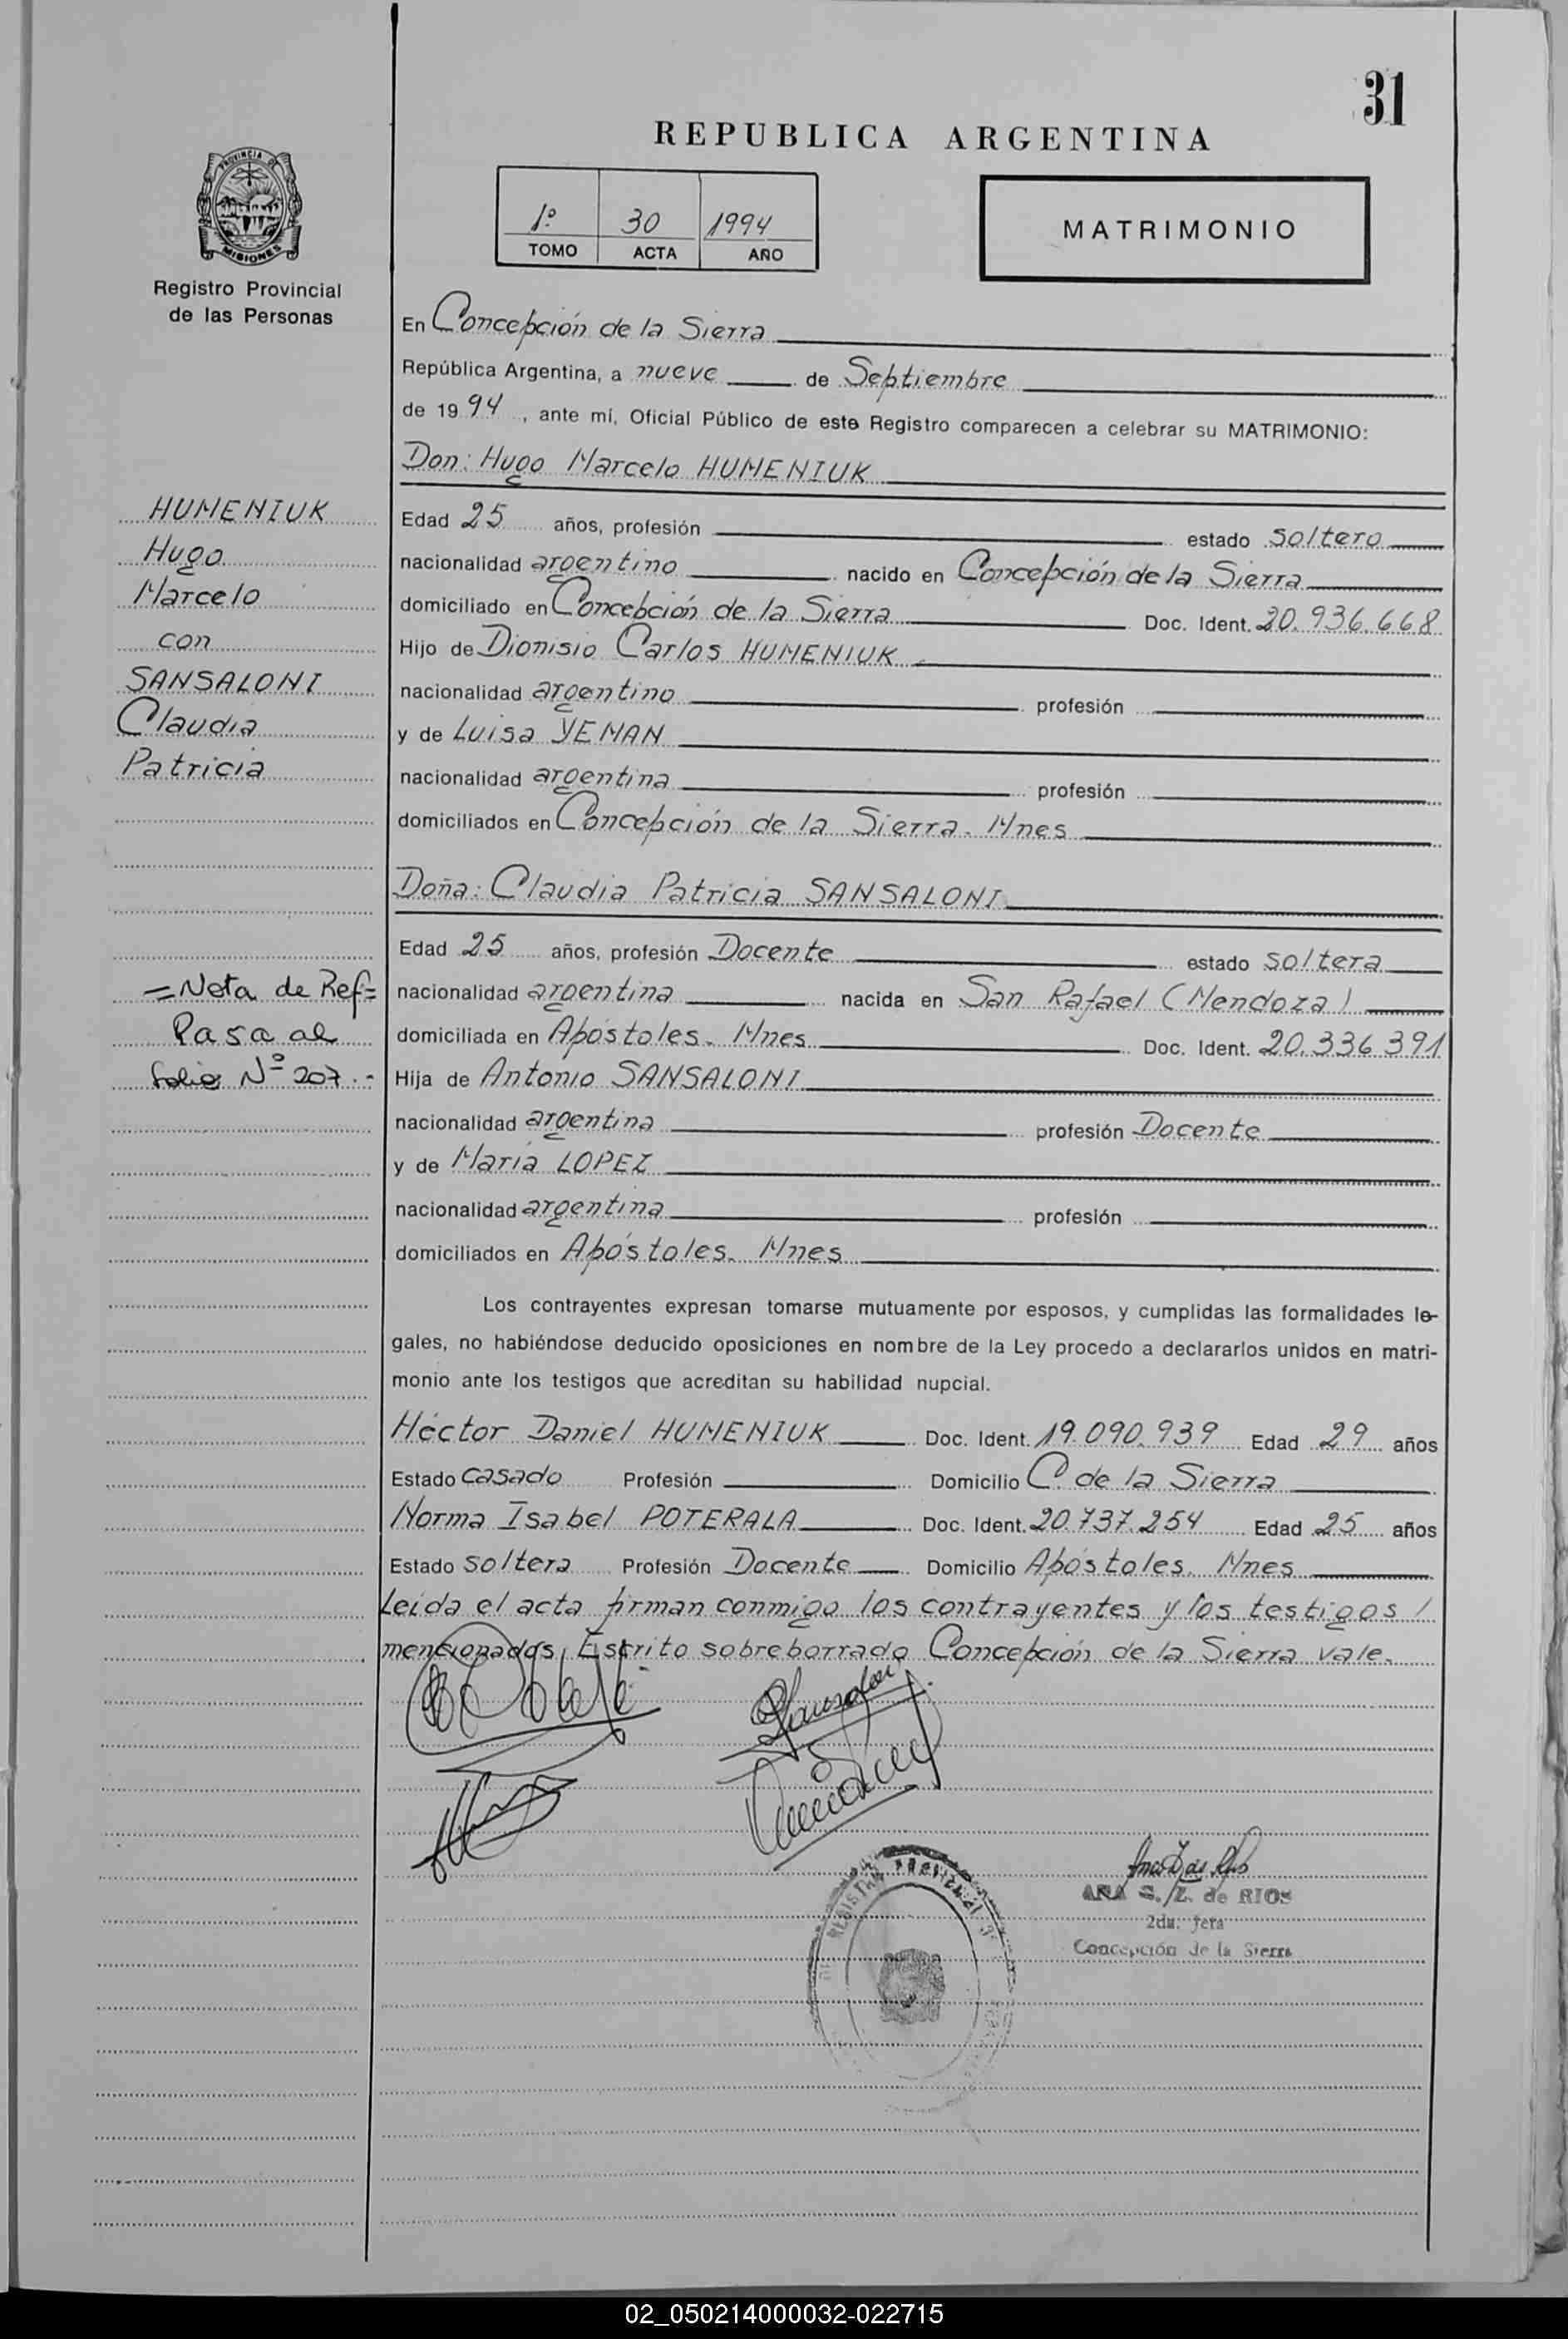 31
REPUBLICA ARGENTINA
PROVINCIA DE
MISIONES
Registro Provincial
de las Personas
1º 30 1994
TOMO ACTA AÑO
MATRIMONIO
En Concepción de la Sierra
República Argentina, a nueve de Septiembre
de 1994, ante mí, Oficial Público de este Registro comparecen a celebrar su MATRIMONIO:
Don: Hugo Marcelo HUMENIUK
Edad 25 años, profesión estado soltero
nacionalidad argentino nacido en Concepción de la Sierra
domiciliado en Concepción de la Sierra Doc. Ident. 20.936.668
Hijo de Dionisio Carlos HUMENIUK
nacionalidad argentino profesión
y de Luisa YEMAN
nacionalidad argentina profesión
domiciliados en Concepción de la Sierra. Mnes
Doña: Claudia Patricia SANSALONI
Edad 25 años, profesión Docente estado soltera
nacionalidad argentina nacida en San Rafael (Mendoza)
domiciliada en Apóstoles. Mnes Doc. Ident. 20.336.391
Hija de Antonio SANSALONI
nacionalidad argentina profesión Docente
y de María LOPEZ
nacionalidad argentina profesión
domiciliados en Apóstoles. Mnes
HUMENIUK
Hugo
Marcelo
con
SANSALONI
Claudia
Patricia
=Nota de Ref=
Pasa al
folio Nº 207.-
Los contrayentes expresan tomarse mutuamente por esposos, y cumplidas las formalidades le-
gales, no habiéndose deducido oposiciones en nombre de la Ley procedo a declararlos unidos en matri-
monio ante los testigos que acreditan su habilidad nupcial.
Héctor Daniel HUMENIUK Doc. Ident. 19.090.939 Edad 29 años
Estado casado Profesión Domicilio C. de la Sierra
Norma Isabel POTERALA Doc. Ident. 20.737.254 Edad 25 años
Estado soltera Profesión Docente Domicilio Apóstoles. Mnes
Leída el acta firman conmigo los contrayentes y los testigos /
mencionados. Escrito sobreborrado Concepción de la Sierra vale.
ANA S. Z. de RIOS
2da. Jefa
Concepción de la Sierra
02_050214000032-022715